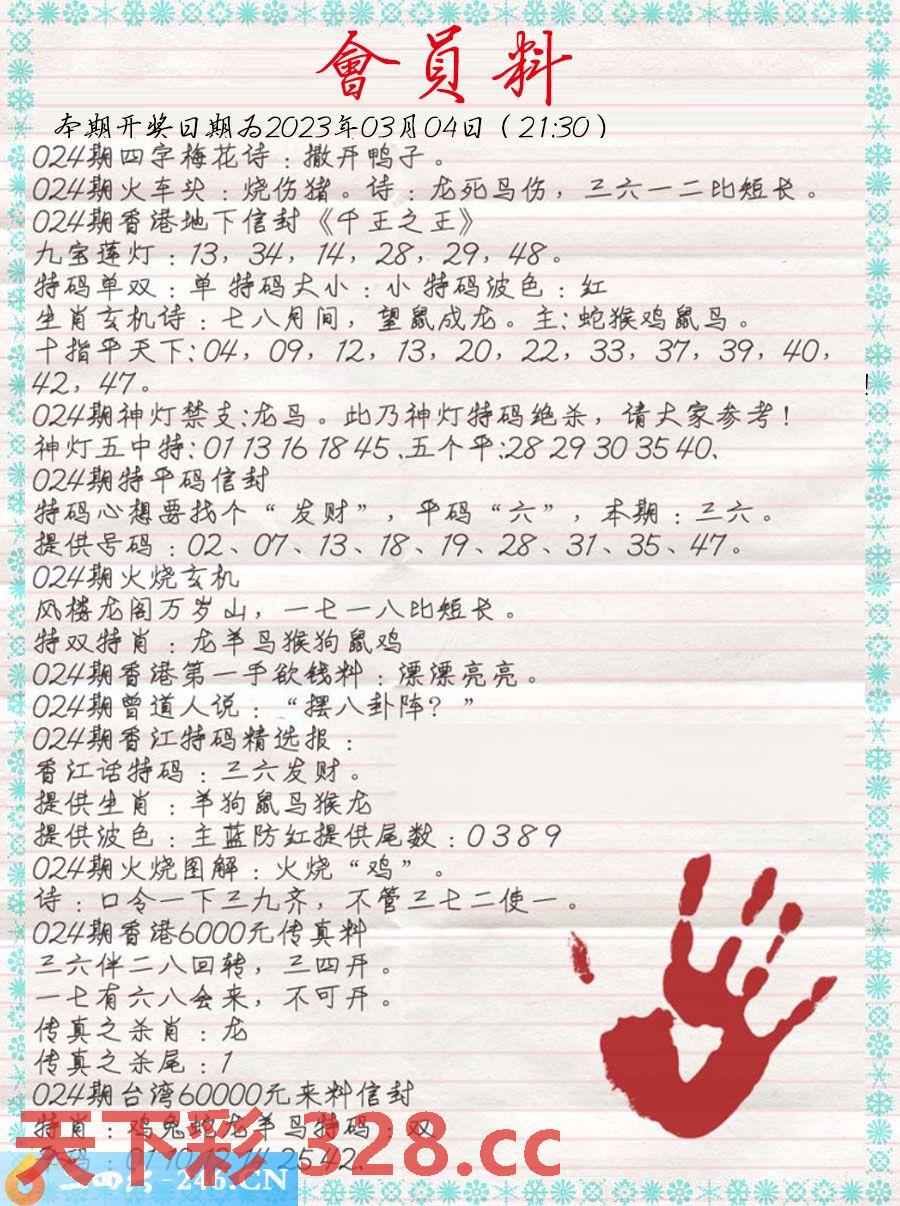 會員料
本期开奖日期为2023年03月04日（21:30）
024期四字梅花诗：撒开鸭子。
024期火车头：烧伤猪。诗：龙死马伤，三六一二比短长。
024期香港地下信封《千王之王》
九宝莲灯：13，34，14，28，29，48。
特码单双：单 特码大小：小 特码波色：红
生肖玄机诗：七八月间，望鼠成龙。主:蛇猴鸡鼠马。
十指平天下:04，09，12，13，20，22，33，37，39，40，
42，47。
!
024期神灯禁支:龙马。此乃神灯特码绝杀，请大家参考！
神灯五中特:01 13 16 18 45 .五个平:28 29 30 35 40、
024期特平码信封
特码心想要找个“发财”，平码“六”，本期：三六。
提供号码：02、07、13、18、19、28、31、35、47。
024期火烧玄机
风楼龙阁万岁山，一七一八比短长。
特双特肖：龙羊马猴狗鼠鸡
024期香港第一手欲钱料：漂漂亮亮。
024期曾道人说：“摆八卦阵？”
024期香江特码精选报：
香江话特码：三六发财。
提供生肖：羊狗鼠马猴龙
提供波色：主蓝防红提供尾数：0389
024期火烧图解：火烧“鸡”。
诗：口令一下三九齐，不管三七二使一。
024期香港6000元传真料
三六伴二八回转，三四开。
一七有六八会来，不可开。
传真之杀肖：龙
传真之杀尾：1
024期台湾60000元来料信封
特肖：鸡兔蛇龙羊马特码：双
码：01 10 12 14 25 42、
天下彩 328.cc
二四六-246.CN